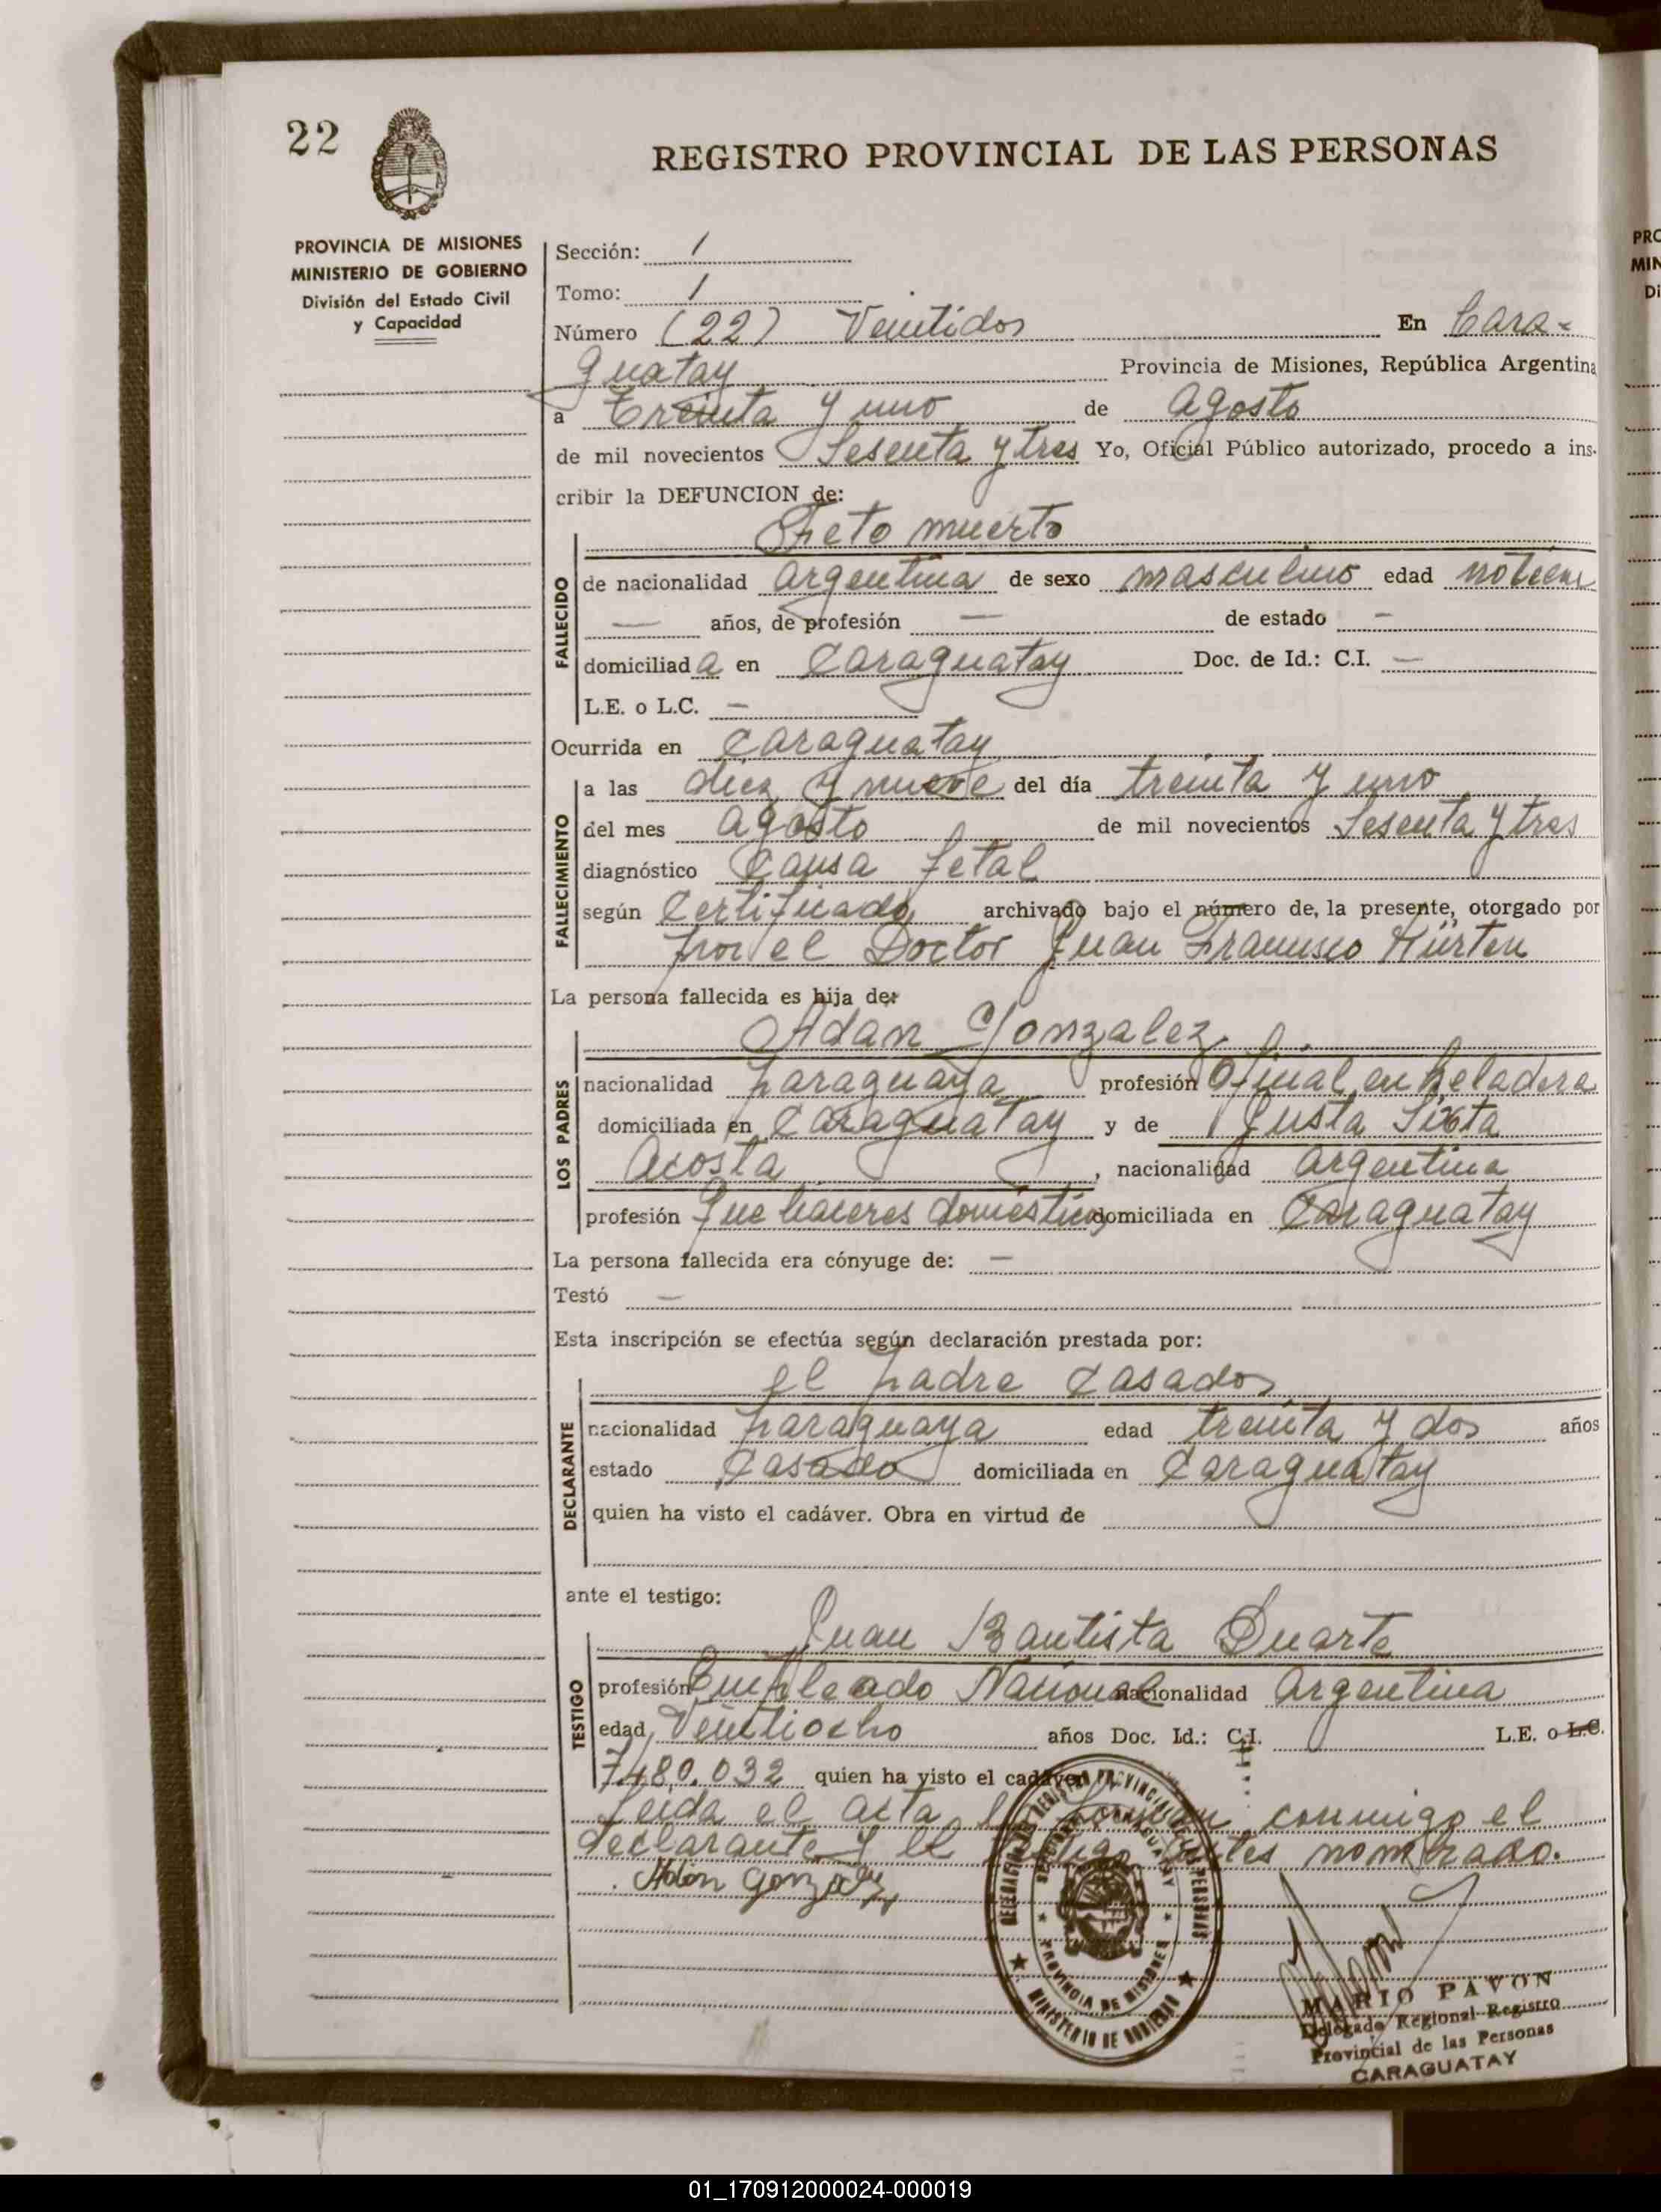 22
REGISTRO PROVINCIAL DE LAS PERSONAS
PROVINCIA DE MISIONES
MINISTERIO DE GOBIERNO
División del Estado Civil
y Capacidad
Sección: 1
Tomo: 1
Número (22) Veintidos En Cara-
guatay Provincia de Misiones, República Argentina
a Treinta y uno de Agosto
de mil novecientos Sesenta y tres Yo, Oficial Público autorizado, procedo a ins-
cribir la DEFUNCION de:
Feto muerto
FALLECIDO
de nacionalidad argentina de sexo masculino edad no tiene
— años, de profesión — de estado —
domiciliada en Caraguatay Doc. de Id.: C.I. —
L.E. o L.C. —
Ocurrida en Caraguatay
FALLECIMIENTO
a las diez y nueve del día treinta y uno
del mes agosto de mil novecientos Sesenta y tres
diagnóstico Causa fetal
según Certificado archivado bajo el número de la presente, otorgado por
por el Doctor Juan Francisco Hürten
La persona fallecida es hija de:
LOS PADRES
Adan Gonzalez
nacionalidad paraguaya profesión Oficial en heladera
domiciliada en Caraguatay y de Justa Sixta
Acosta, nacionalidad argentina
profesión Que haceres domésticos domiciliada en Caraguatay
La persona fallecida era cónyuge de: —
Testó —
Esta inscripción se efectúa según declaración prestada por:
DECLARANTE
el padre Casados
nacionalidad paraguaya edad treinta y dos años
estado Casado domiciliada en Caraguatay
quien ha visto el cadáver. Obra en virtud de
ante el testigo:
TESTIGO
Juan Bautista Duarte
profesión Empleado Nacional nacionalidad Argentina
edad Veintiocho años Doc. Id.: C.I. L.E. o L.C.
7.480.032 quien ha visto el cadáver
Leida el acta, la firman conmigo el
declarante y el testigo antes nombrado.
Adan Gonzalez
DELEGACION DEL REGISTRO PROVINCIAL DE LAS PERSONAS
CARAGUATAY
PROVINCIA DE MISIONES
MINISTERIO DE GOBIERNO
MARIO PAVON
Delegado Regional Registro
Provincial de las Personas
CARAGUATAY
PRO
MIN
Di
01_170912000024-000019